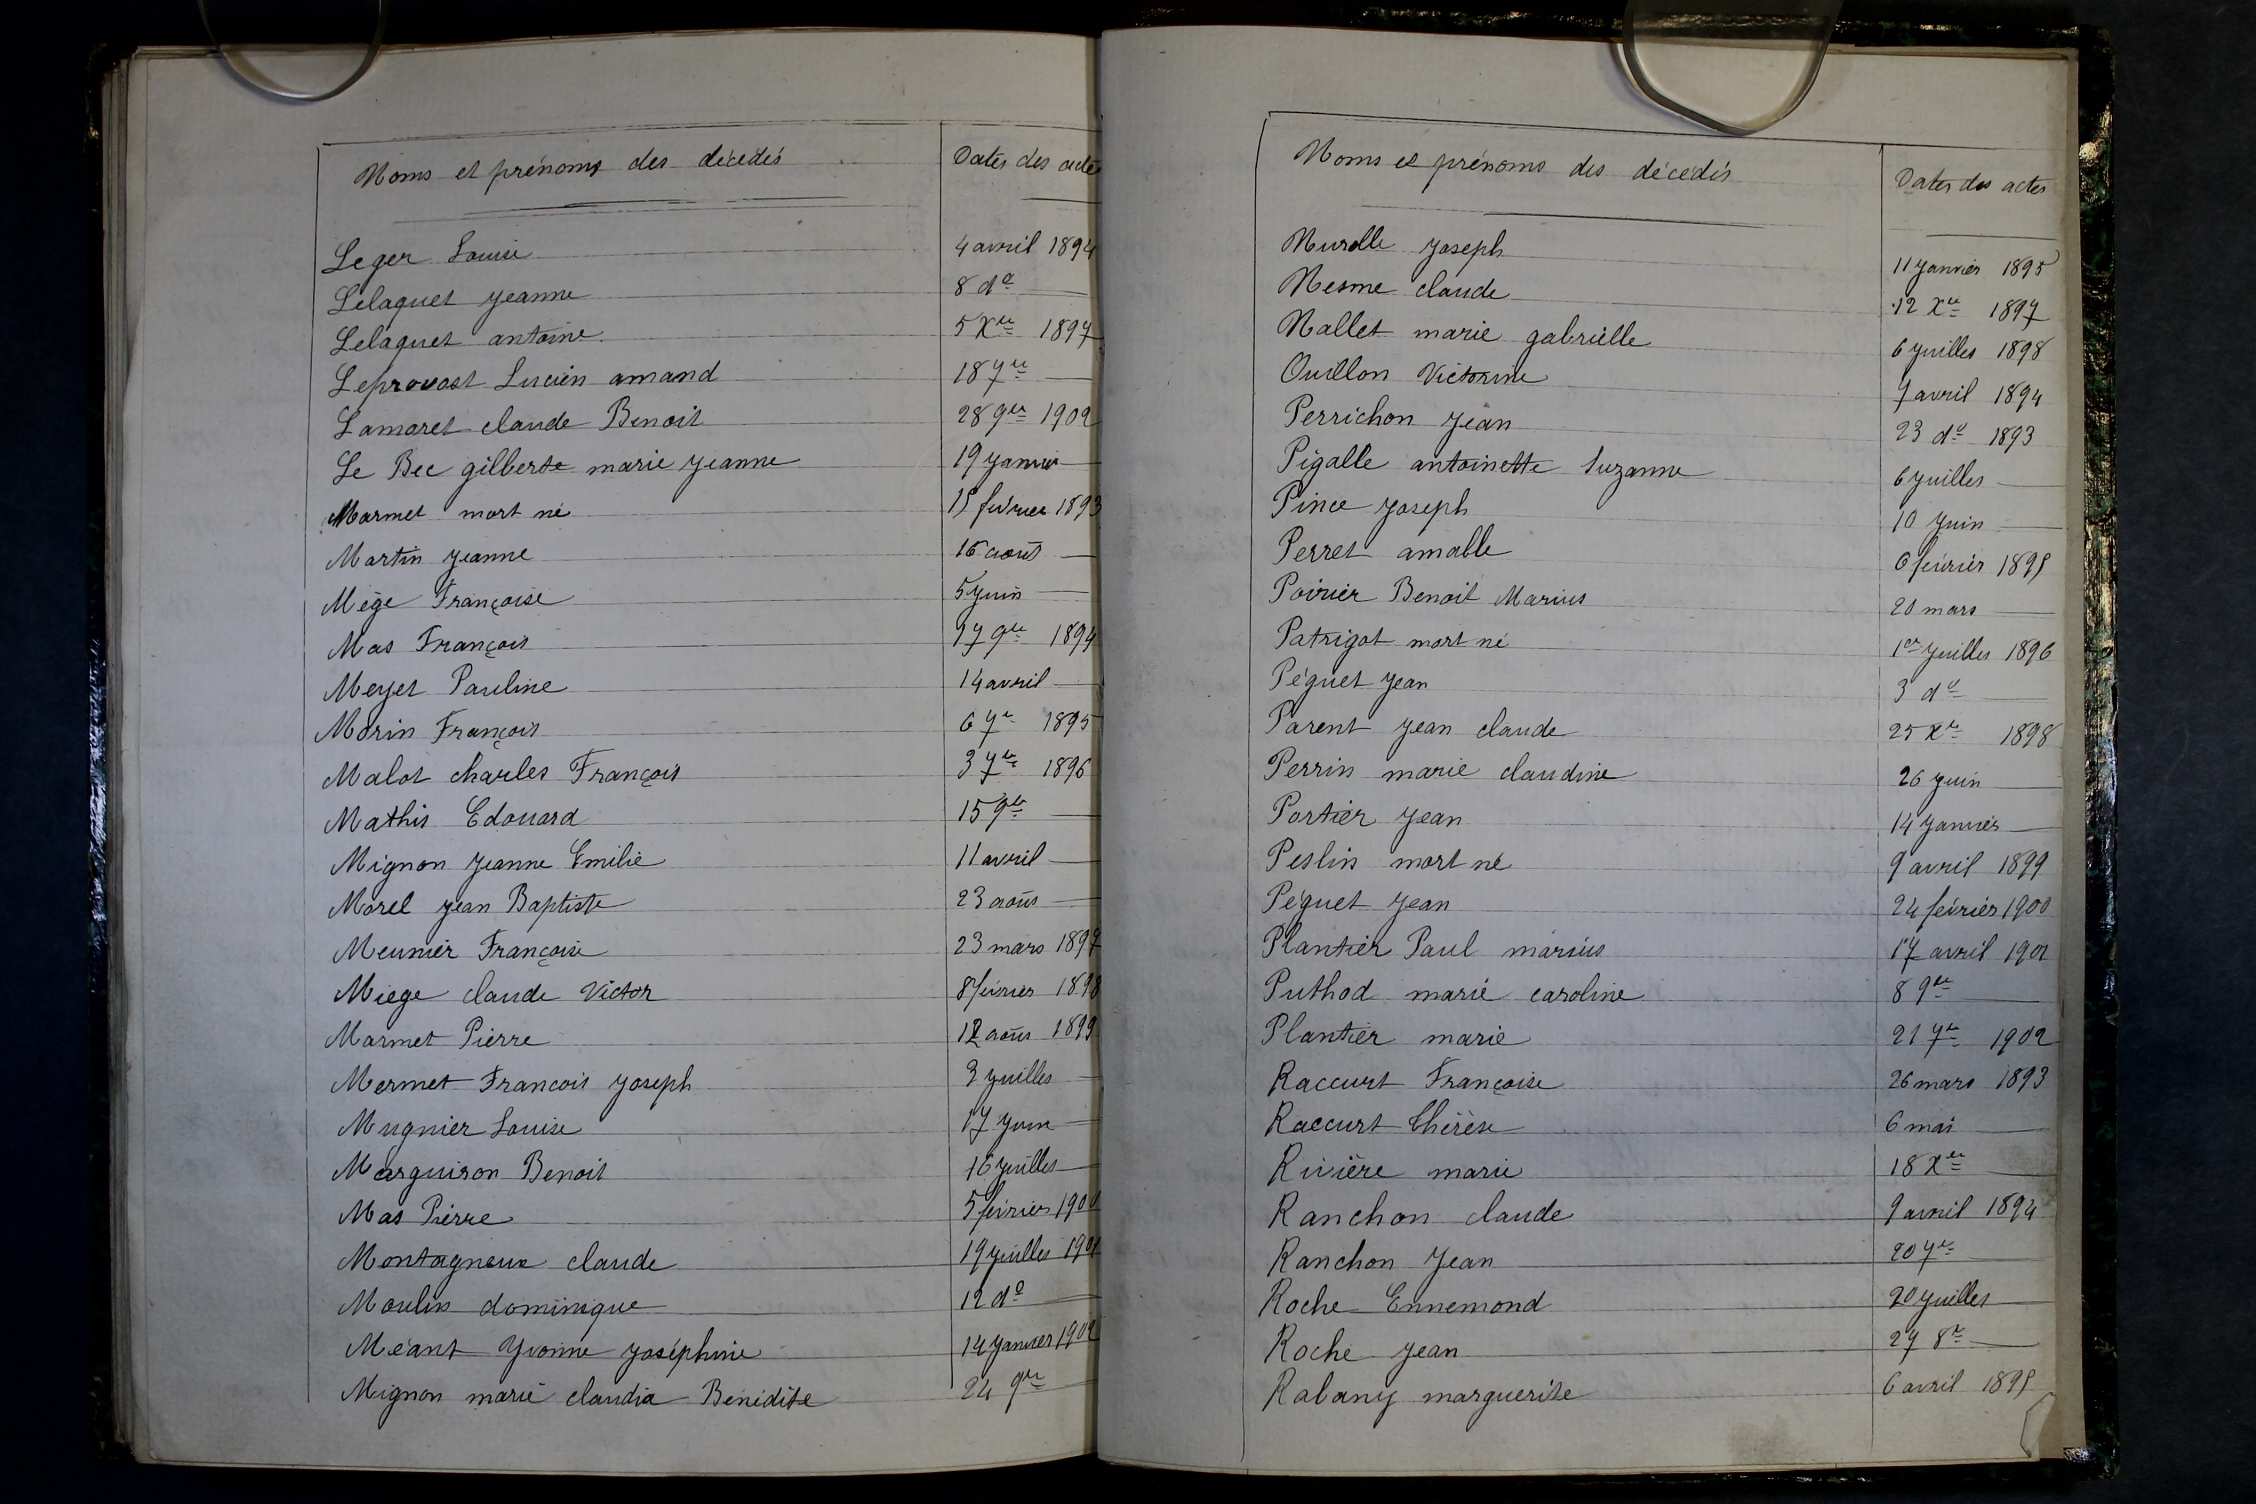 Noms et prénoms des décédés Dates des actes
Leger Louise 4 avril 1894
Lelaguet Jeanne 8 do —
Lelaguet antoine 5 Xre 1897
Leprovost Lucien amand 18 7re —
Lamaret claude Benoit 28 9re 1902
Le Bec gilberte marie Jeanne 19 Janvier —
Marmet mort né 15 février 1893
Martin Jeanne 16 août —
Mège Françoise 5 Juin —
Mas François 17 9re 1894
Meyet Pauline 14 avril —
Morin François 6 7re 1895
Malot charles François 3 7re 1896
Mathis Edouard 15 9re —
Mignon Jeanne Emilie 11 avril —
Morel Jean Baptiste 23 août —
Meunier Françoise 23 mars 1897
Miege claude Victor 8 février 1898
Marmet Pierre 12 août 1899
Mermet Francois Joseph 3 Juillet —
Mugnier Louise 17 Juin —
Marguiron Benoit 16 Juillet —
Mas Pierre 5 février 1900
Montagneux claude 19 Juillet 1901
Moulin dominique 12 do —
Méant Yvonne Joséphine 14 Janvier 1902
Mignon marie claudia Bénédite 24 9re —
Noms et prénoms des décédés Dates des actes
Nurolle Joseph 11 Janvier 1895
Nesme claude 12 Xre 1897
Nallet marie gabrielle 6 Juillet 1898
Ouillon Victorine 7 avril 1894
Perrichon Jean 23 do 1893
Pigalle antoinette Suzanne 6 Juillet —
Pince Joseph 10 Juin —
Perret amable 6 février 1895
Poirier Benoit Marius 20 mars —
Patrigot mort né 1er Juillet 1896
Péguet Jean 3 do —
Parent Jean claude 25 Xre 1898
Perrin marie claudine 26 Juin —
Portier Jean 14 Janvier —
Peslin mort né 9 avril 1899
Péguet Jean 24 février 1900
Plantier Paul marius 17 avril 1901
Puthod marie caroline 8 9re —
Plantier marie 21 7re 1902
Raccurt Françoise 26 mars 1893
Raccurt Thérèse 6 mai —
Rivière marie 18 Xre —
Ranchon claude 9 avril 1894
Ranchon Jean 20 7re —
Roche Ennemond 20 Juillet —
Roche Jean 27 8re —
Rabany marguerite 6 avril 1895